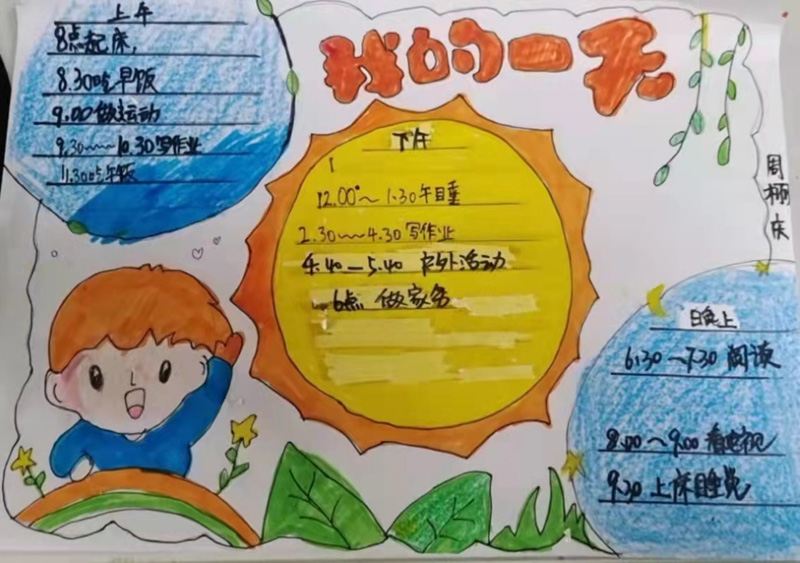 我的一天
上午
8点起床,
8.30吃早饭
9.00做运动
9.30~~10.30写作业
11.30吃午饭
下午
12.00~1.30午睡
2.30~~4.30写作业
4.40—5.40 户外活动
6点 做家务
周栩庆
晚上
6:30~7:30 阅读
8:00~9:00看电视
9:30 上床睡觉